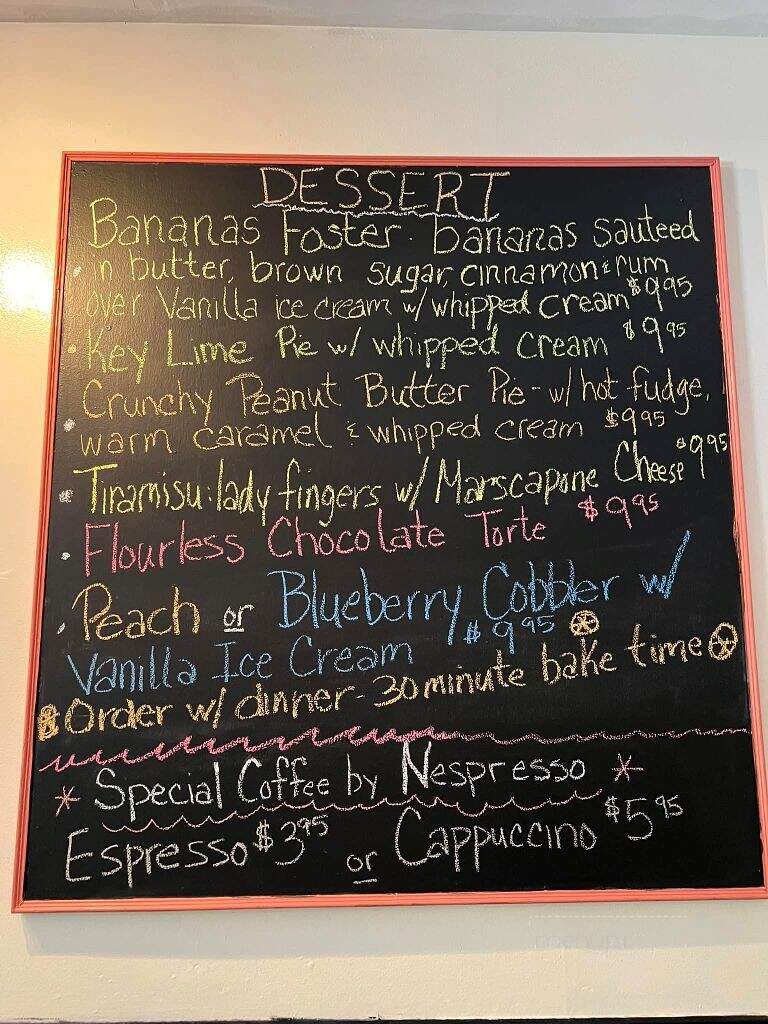 DESSERT
Bananas Foster · bananas sauteed
in butter, brown sugar, cinnamon & rum
over Vanilla ice cream w/ whipped cream $9.95
Key Lime Pie w/ whipped cream $9.95
Crunchy Peanut Butter Pie - w/ hot fudge,
warm caramel & whipped cream $9.95
Tiramisu · lady fingers w/ Marscapone Cheese $9.95
Flourless Chocolate Torte $9.95
Peach or Blueberry Cobbler w/
Vanilla Ice Cream $9.95
Order w/ dinner - 30 minute bake time
* Special Coffee by Nespresso *
Espresso $3.95 or Cappuccino $5.95